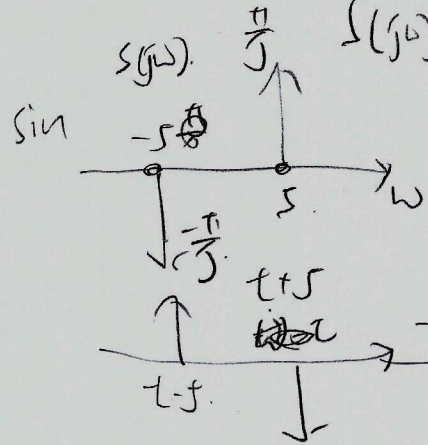 S(jω). π/j S(jω)
sin
-5 5. ω
-π/j.
t+5
t-5.